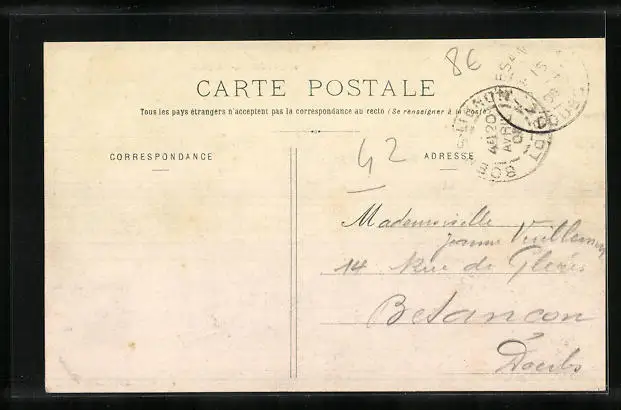 86
CARTE POSTALE
Tous les pays étrangers n'acceptent pas la correspondance au recto (Se renseigner à la
CORRESPONDANCE
42
ADRESSE
Mademoiselle
Jeanne Vuillemin
14 Rue de
Besancon
Doubs